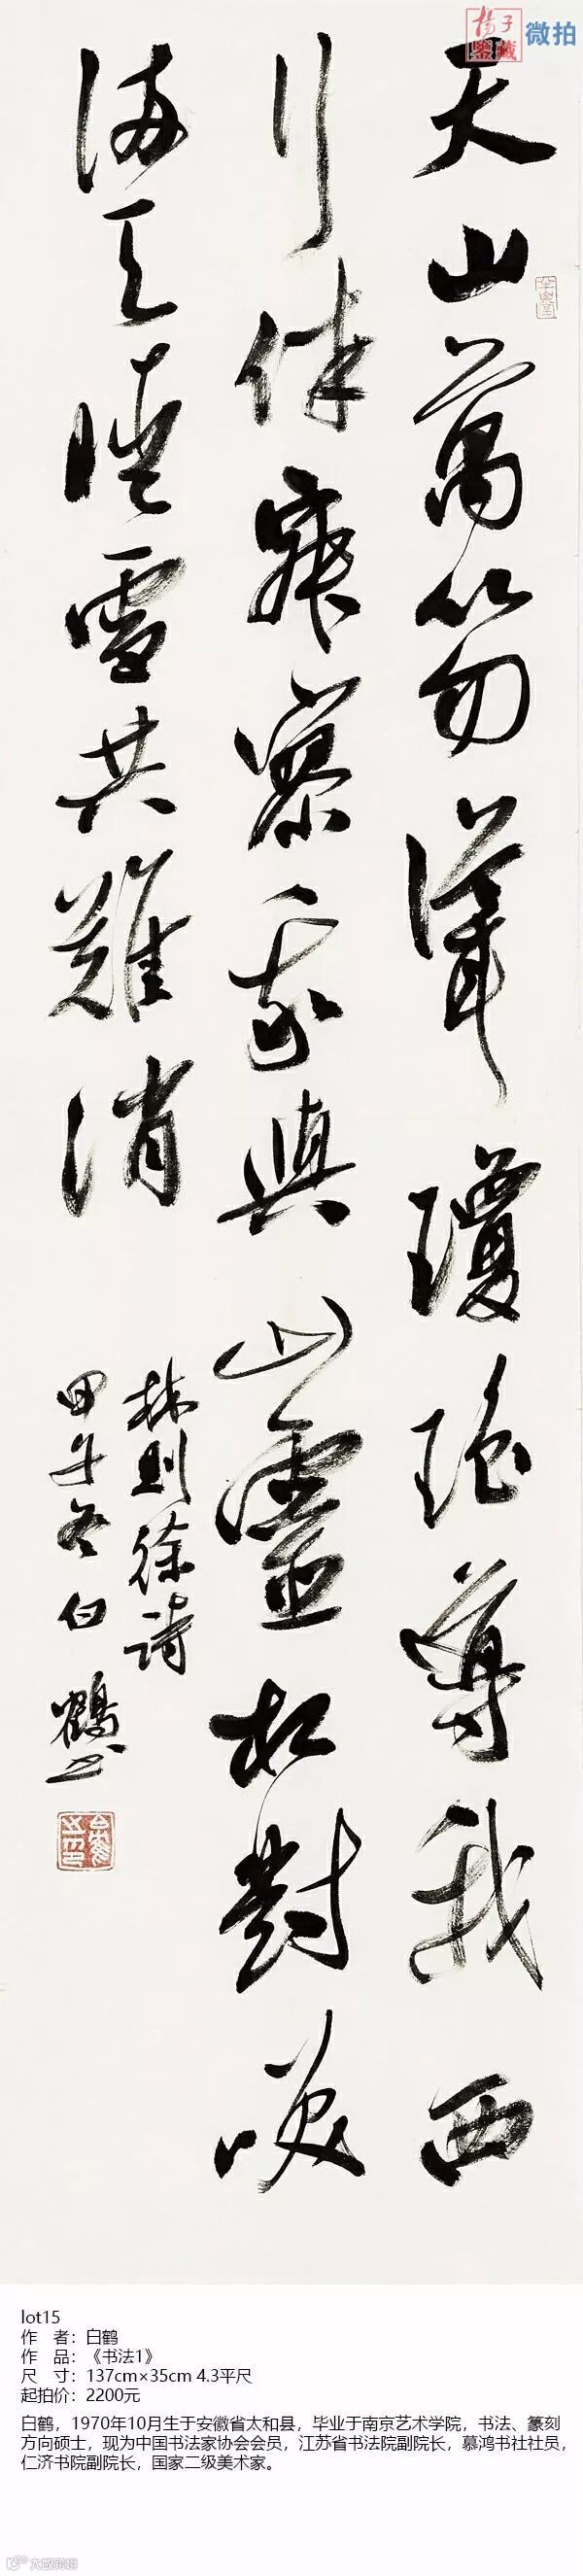 天山萬笏聳瓊瑤導我西
行伴寂寥我與山靈相對咲
滿頭晴雪共難消
林則徐詩
甲午冬白鶴书
揚子鑒藏 微拍
lot15
作 者：白鹤
作 品：《书法1》
尺 寸：137cm×35cm 4.3平尺
起拍价：2200元
白鹤，1970年10月生于安徽省太和县，毕业于南京艺术学院，书法、篆刻
方向硕士，现为中国书法家协会会员，江苏省书法院副院长，慕鸿书社社员，
仁济书院副院长，国家二级美术家。